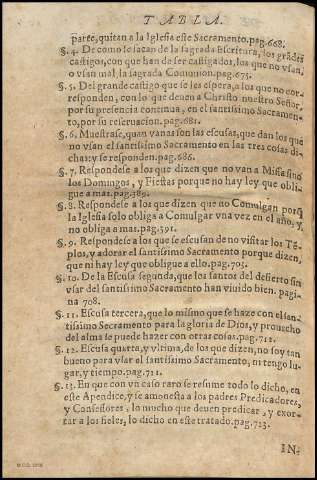 TABLA.
parte, quitan a la Iglesia este Sacramento. pag. 668.
§. 4. De como se sacan de la sagrada Escritura, los grãdes
castigos, con que han de ser castigados, los que no vsan,
o vsan mal, la sagrada Comunion. pag. 675.
§. 5. Del grande castigo que se les espera, a los que no cor-
responden, con lo que deuen a Christo nuestro Señor,
por su presencia continua, en el santissimo Sacramen-
to, por su reseruacion. pag. 681.
§. 6. Muestrase, quan vanas son las escusas, que dan los que
no vsan el santissimo Sacramento en las tres cosas di-
chas: y se responden. pag. 686.
§. 7. Respondese a los que dizen que no van a Missa sino
los Domingos, y Fiestas porque no hay ley que obli-
gue a mas. pag. 389.
§. 8. Respondese a los que dizen que no Comulgan porq̃
la Iglesia solo obliga a Comulgar vna vez en el año, y
no obliga a mas. pag. 391.
§. 9. Respondese a los que se escusan de no visitar los Tẽ-
plos, y adorar el santissimo Sacramento porque dizen,
que ni hay ley que obligue a ello. pag. 703.
§. 10. De la Escusa segunda, que los santos del desierto sin
vsar del santissimo Sacramento han viuido bien. pagi-
na 708.
§. 11. Escusa tercera, que lo mismo que se haze con el san-
tissimo Sacramento para la gloria de Dios, y prouecho
del alma se puede hazer con otras cosas. pag. 712.
§. 12. Escusa quarta, y vltima, de los que dizen, no soy tan
bueno para vsar el santissimo Sacramento, ni tengo lu-
gar, y tiempo. pag. 711.
§. 13. En que con vn caso raro se resume todo lo dicho, en
este Apendice, y se amonesta a los padres Predicadores,
y Confessores, lo mucho que deuen predicar, y exor-
tar a los fieles, lo dicho en este tratado. pag. 723.
IN-